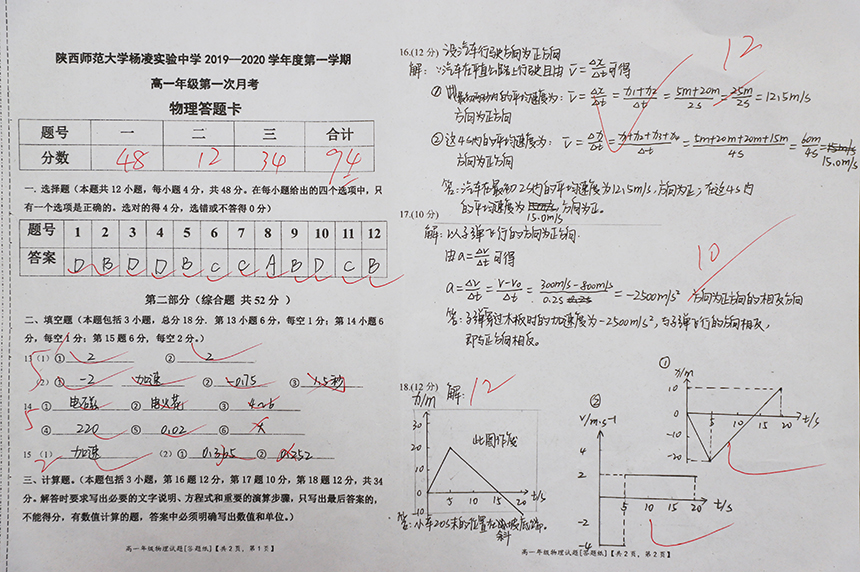 陕西师范大学杨凌实验中学 2019—2020 学年度第一学期
高一年级第一次月考
物理答题卡
题号 一 二 三 合计
分数 48 12 34 94
一. 选择题（本题共 12 小题，每小题 4 分，共 48 分。在每小题给出的四个选项中，只
有一个选项是正确的。选对的得 4 分，选错或不答得 0 分）
题号 1 2 3 4 5 6 7 8 9 10 11 12
答案 D B D D B C C A B D C B
第二部分（综合题 共 52 分）
二、填空题（本题包括 3 小题，总分 18 分．第 13 小题 6 分，每空 1 分；第 14 小题 6
分，每空 1 分；第 15 题 6 分，每空 2 分。）
13（1）① 2 ② 2
（2）① -2 加速 ② -0.75 ③ 1.5秒
5
14 ① 电磁 ② 电火花 ③ 4~6
④ 220 ⑤ 0.02 ⑥
5
15（1） 加速 （2）① 0.365 ②
2
三、计算题。（本题包括 3 小题，第 16 题 12 分，第 17 题 10 分，第 18 题 12 分，共 34
分。解答时要求写出必要的文字说明、方程式和重要的演算步骤，只写出最后答案的，
不能得分，有数值计算的题，答案中必须明确写出数值和单位。）
高一年级物理试题[答题纸]【共 2 页，第 1 页】
16.(12 分) 设汽车行驶方向为正方向
12
解：∵汽车在平直公路上行驶且由 v̄=Δx/Δt可得
① 最初两秒内的平均速度为：v̄=Δx/Δt=(x₁+x₂)/Δt=(5m+20m)/2s=25m/2s=12.5m/s
方向为正方向
② 这4s内的平均速度为：v̄=Δx/Δt=(x₁+x₂+x₃+x₄)/Δt=(5m+20m+20m+15m)/4s=60m/4s=
15.0m/s
方向为正方向
答：汽车在最初2s内的平均速度为12.5m/s，方向为正；在这4s内
的平均速度为 方向为正。
15.0m/s
17.(10 分)
10
解：以子弹飞行的方向为正方向.
由a=Δv/Δt可得
a=Δv/Δt=(v-v₀)/Δt=(300m/s-800m/s)/0.2s=-2500m/s² 方向为正方向的相反方向
答：子弹穿过木板时的加速度为-2500m/s²，与子弹飞行的方向相反，
即与正方向相反。
18.(12 分) 解：
12
x/m
30
20
10
0
-10
5 10 15 20 t/s
此图作废
① x/m
10
0
-10
-20
5 10 15 20 t/s
② v/m·s-1
4
2
-2
-4
5 10 15 20 t/s
答：小车20s末的位置在 坡底端。
斜
高一年级物理试题[答题纸]【共 2 页，第 2 页】